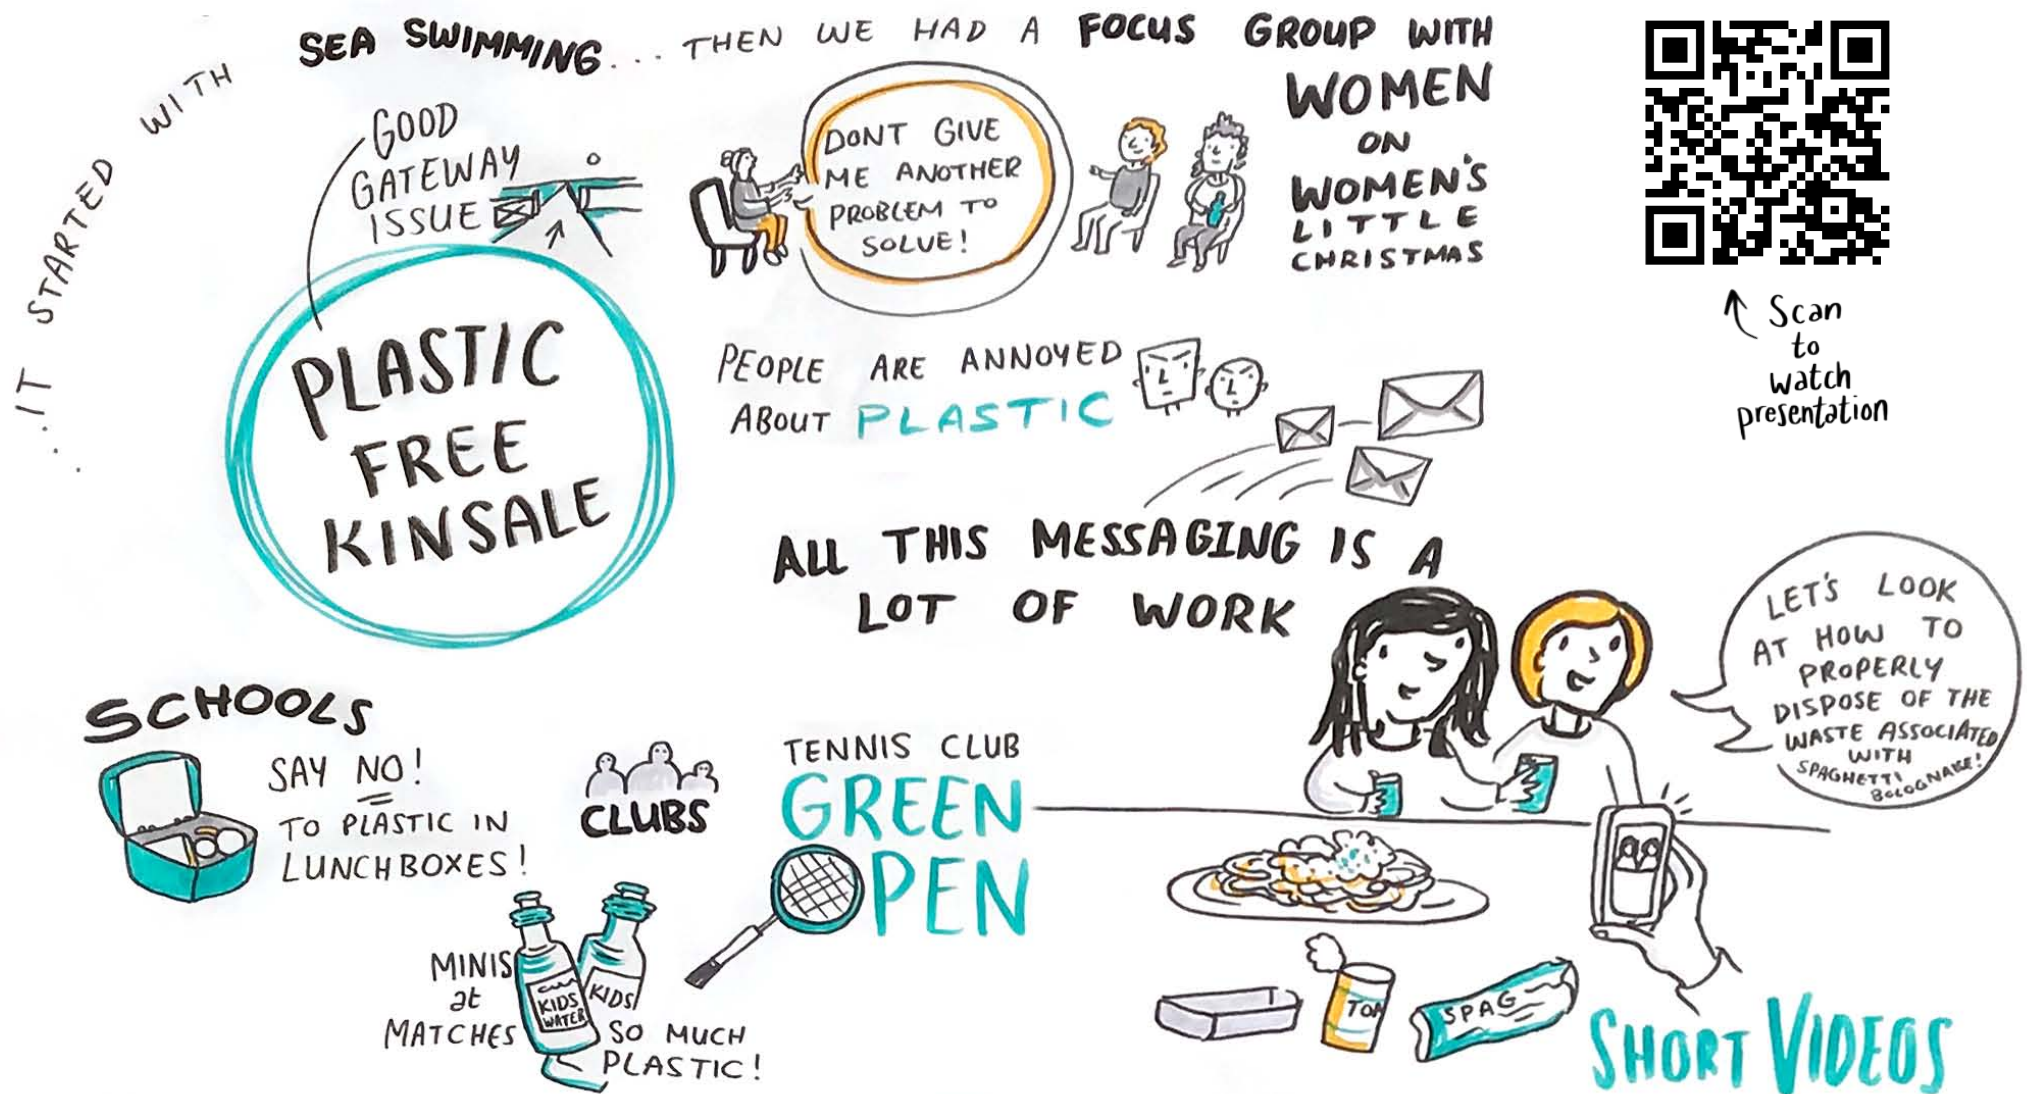 ...IT STARTED WITH SEA SWIMMING... THEN WE HAD A FOCUS GROUP WITH
WOMEN
ON
WOMEN'S
LITTLE
CHRISTMAS
GOOD
GATEWAY
ISSUE
DONT GIVE
ME ANOTHER
PROBLEM TO
SOLVE!
Scan
to
watch
presentation
PLASTIC
FREE
KINSALE
PEOPLE ARE ANNOYED
ABOUT PLASTIC
ALL THIS MESSAGING IS A
LOT OF WORK
LET'S LOOK
AT HOW TO
PROPERLY
DISPOSE OF THE
WASTE ASSOCIATED
WITH
SPAGHETTI
BOLOGNAISE!
SCHOOLS
SAY NO!
TO PLASTIC IN
LUNCHBOXES!
CLUBS
TENNIS CLUB
GREEN
OPEN
MINIS
at
MATCHES
KIDS
WATER
KIDS
SO MUCH
PLASTIC!
TOM
SPAG
SHORT VIDEOS